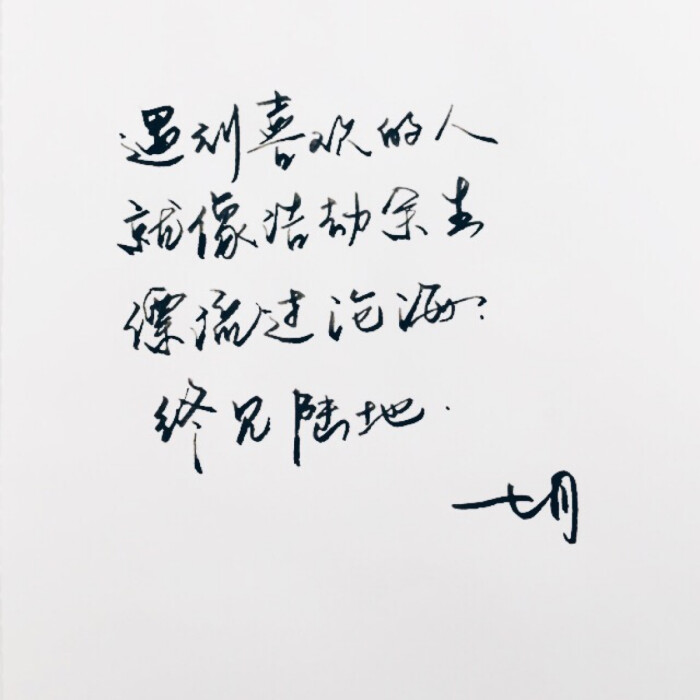 遇到喜欢的人
就像浩劫余生
漂流过沧海,
终见陆地.
七月